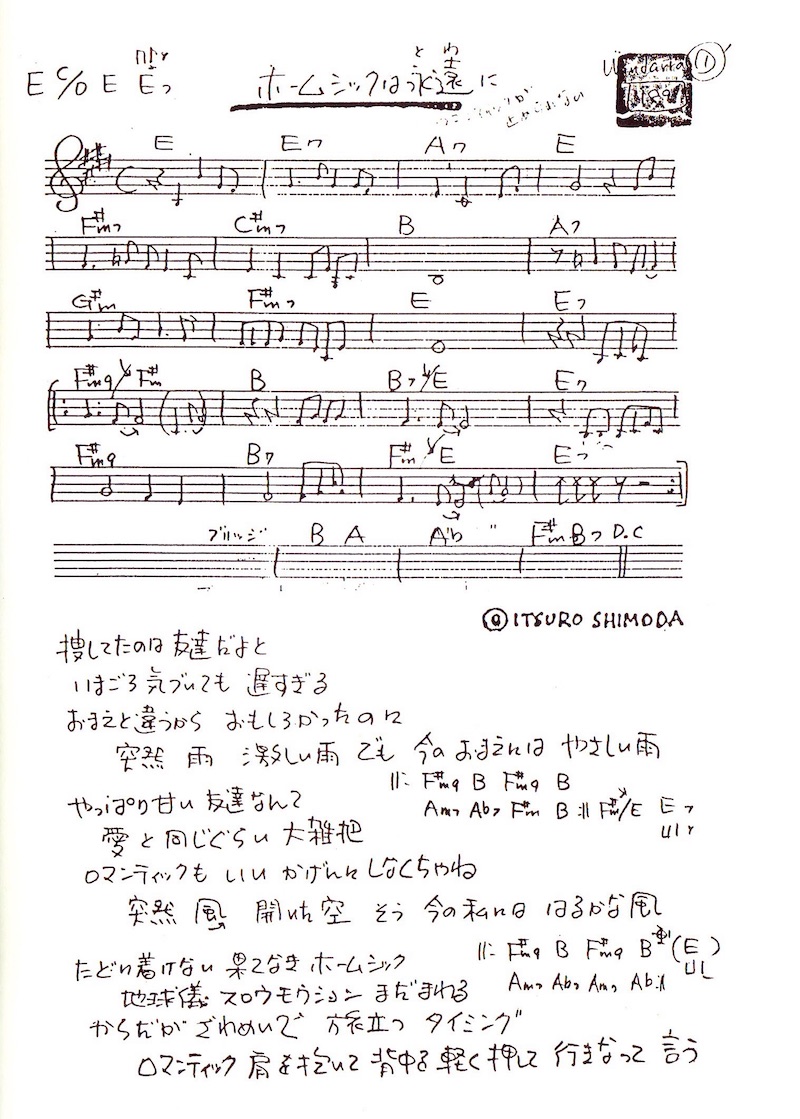 E C/D E E7 ホームシックは永遠に ①
とわ
E E7 A7 E
F#m7 C#m7 B A7
G#m F#m7 E E7
F#m9 F#m B B7 E E7
F#m9 B7 F#m E E7
ブリッジ B A A♭ " F#m B7 D.C
ITSURO SHIMODA
捜してたのは 友達だよと
いまごろ 気づいても 遅すぎる
おまえと違うから おもしろかったのに
突然 雨 激しい雨 でも 今の おまえには やさしい雨
||: F#m9 B F#m9 B
やっぱり甘い 友達なんて
Am7 Ab7 F#m B :|| F#m/E E7
愛と同じぐらい 大雑把
ロマンティックも いい かげんに しなくちゃね
突然 風 開いた空 そう 今の私には はるかな風
||: F#m9 B F#m9 B (E)
たどり着けない 果てなき ホームシック
Am7 Ab7 Am7 Ab :||
地球儀 スロウモウション まだまわる
からだが ざわめいて 旅立つ タイミング
ロマンティック 肩を抱いて 背中を 軽く押して 行きなって 言う